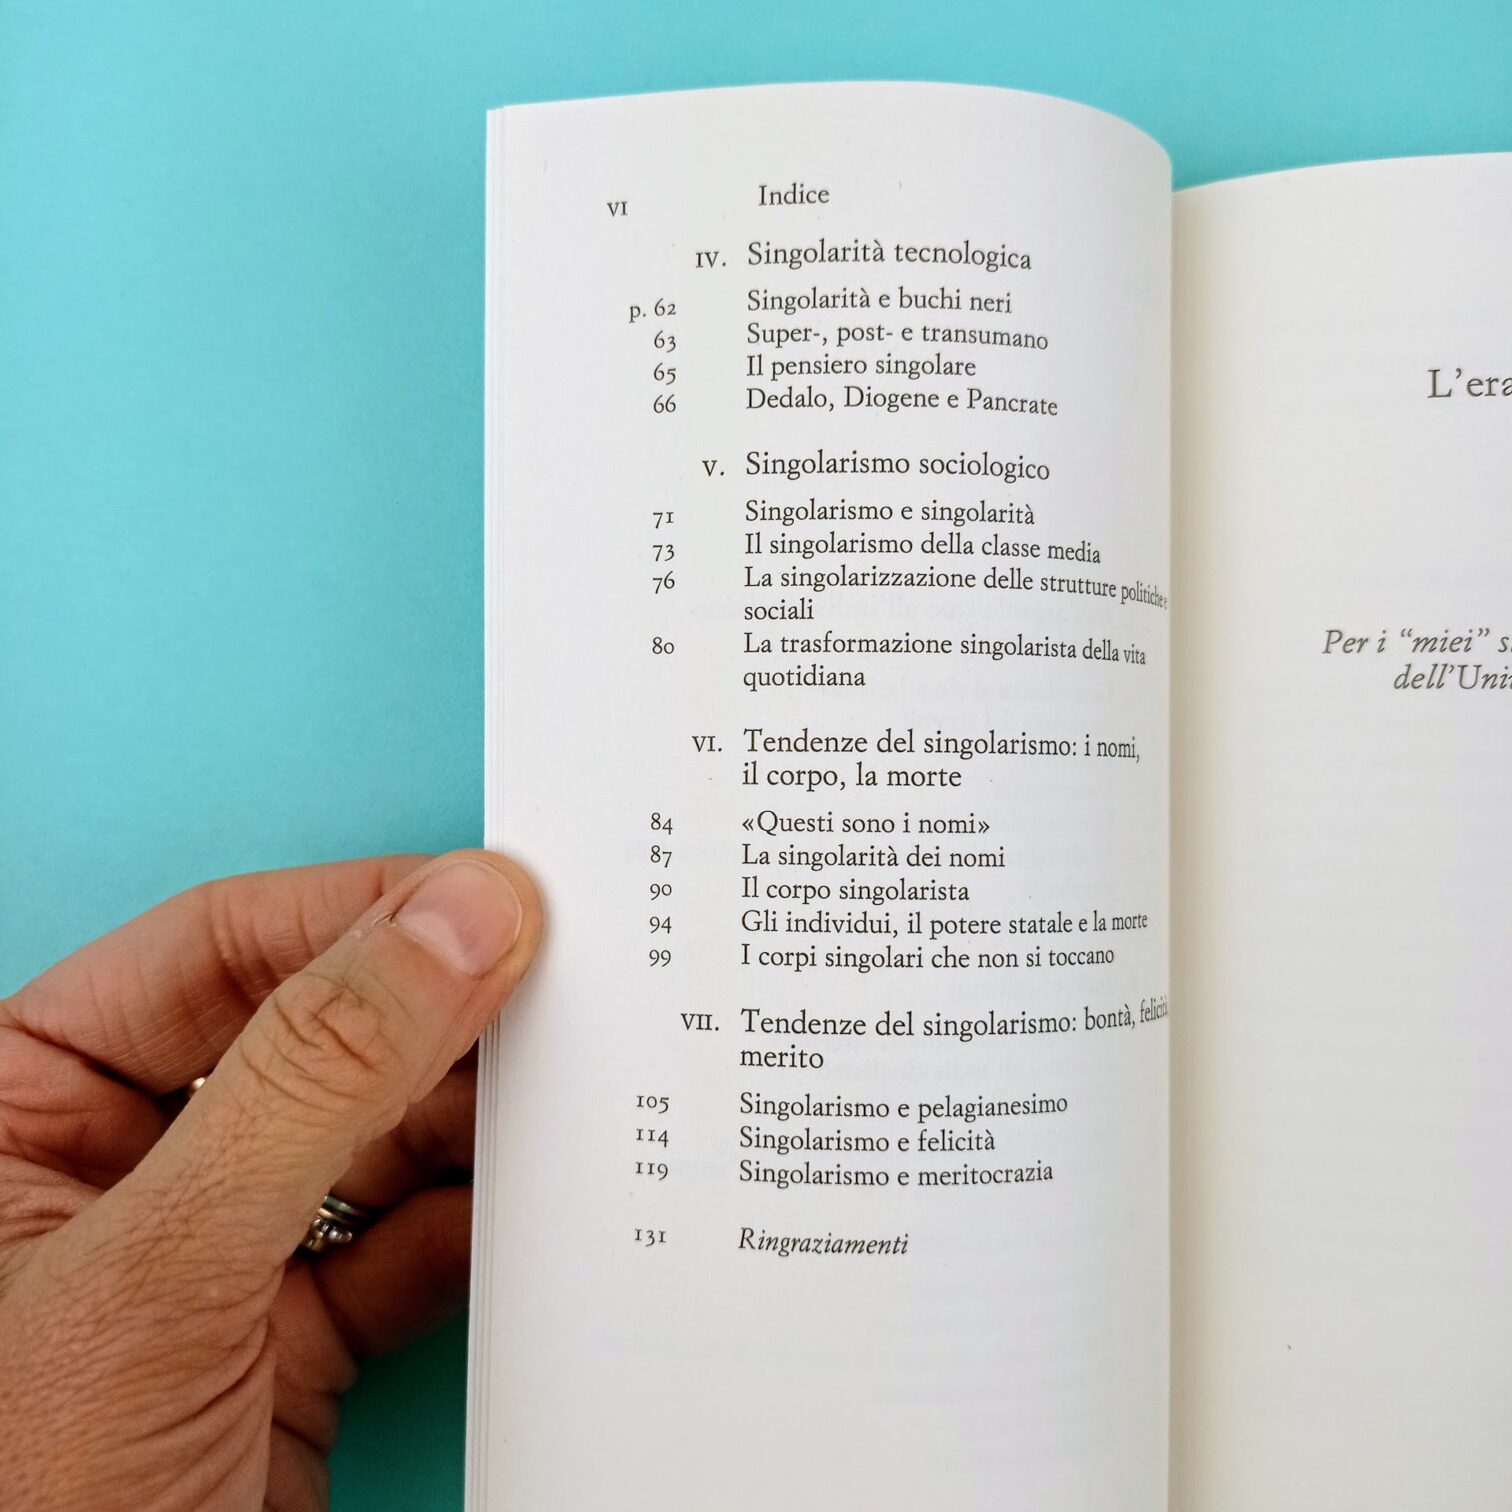 VI Indice
IV. Singolarità tecnologica
p. 62 Singolarità e buchi neri
63 Super-, post- e transumano
65 Il pensiero singolare
66 Dedalo, Diogene e Pancrate
V. Singolarismo sociologico
71 Singolarismo e singolarità
73 Il singolarismo della classe media
76 La singolarizzazione delle strutture politiche e
sociali
80 La trasformazione singolarista della vita
quotidiana
VI. Tendenze del singolarismo: i nomi,
il corpo, la morte
84 «Questi sono i nomi»
87 La singolarità dei nomi
90 Il corpo singolarista
94 Gli individui, il potere statale e la morte
99 I corpi singolari che non si toccano
VII. Tendenze del singolarismo: bontà, felicità,
merito
105 Singolarismo e pelagianesimo
114 Singolarismo e felicità
119 Singolarismo e meritocrazia
131 Ringraziamenti
L'era
Per i “miei”